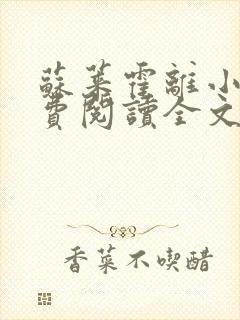 蘇萊霍離小
費閱讀全文
香菜不喫醋